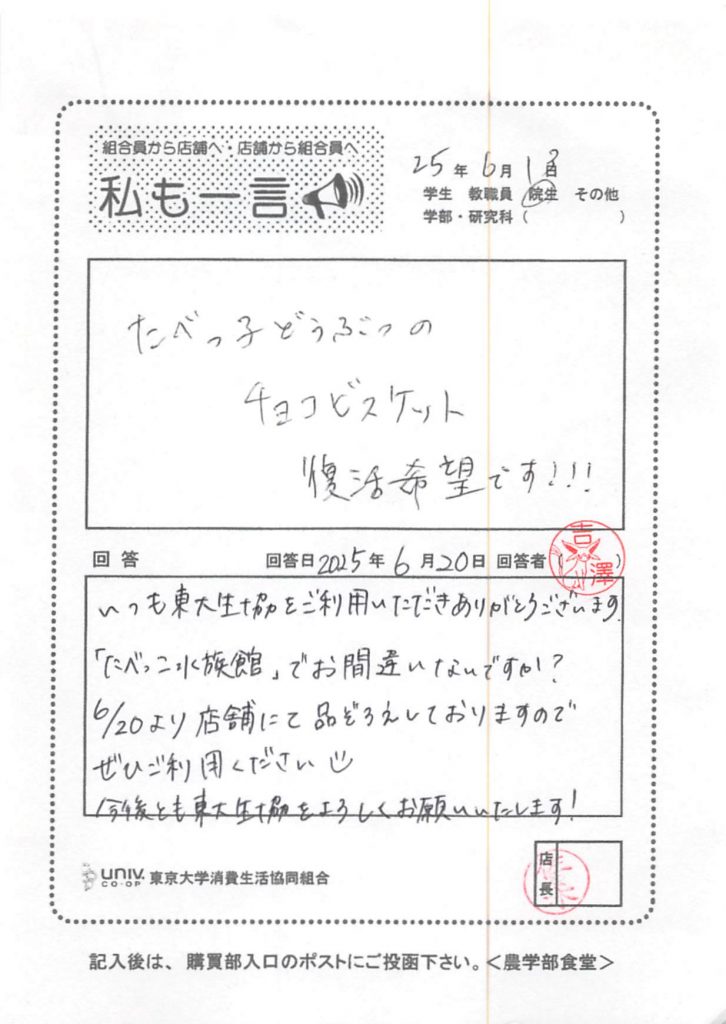 組合員から店舗へ・店舗から組合員へ
私も一言
25年6月13日
学生 教職員 院生 その他
学部・研究科( )
たべっ子どうぶつの
チョコビスケット
復活希望です!!!
回答 回答日2025年6月20日 回答者( )
吉澤
いつも東大生協をご利用いただきありがとうございます
「たべっこ水族館」でお間違いないですか?
6/20より店舗にて品ぞろえしておりますので
ぜひご利用ください
今後とも東大生協をよろしくお願いいたします!
店長
UNIV. CO-OP 東京大学消費生活協同組合
記入後は、購買部入口のポストにご投函下さい。<農学部食堂>